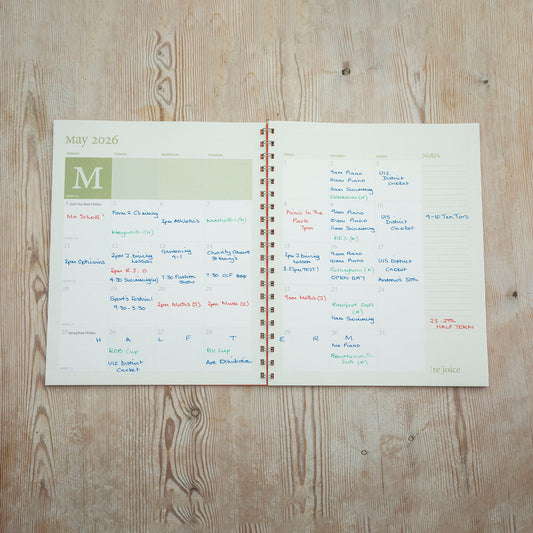 May 2026
notes
M
1
2
3
9am Piano
10am Piano
11am Swimming
U12
District
Cricket
4 Early May Bank Holiday
No School!
5
Form 2 Climbing
6
2pm Athletics
7
8
Picnic In the
Park
7pm
9
9am Piano
10am Piano
11am Swimming
KES (A)
10
U15
District
Cricket
9-10 Ten Tors
11
2pm Opticians
12
2pm J Driving
Lesson
2pm R.S. O
4-30 Swimming
13
Gardening
9-1
7-30 Fashion
Show
14
Charity Concert
St Mary's
7-30 CCF
15
2pm J Driving
Lesson
16
9am Piano
10am Piano
OPEN DAY
17
U15 District
Cricket
Andrew's 50th
18
19
Sports Festival
20
2pm Maths (J)
21
2pm Music (J)
22
9am Maths (J)
23
11am Swimming
24
25 Spring Bank Holiday
26
27
28
29
30
31
H A L F T E R M
ROB Cup
U12 District
Cricket
BV Cup
Art Exhibition
No Piano
Bournemouth
HALF TERM
[re]joice